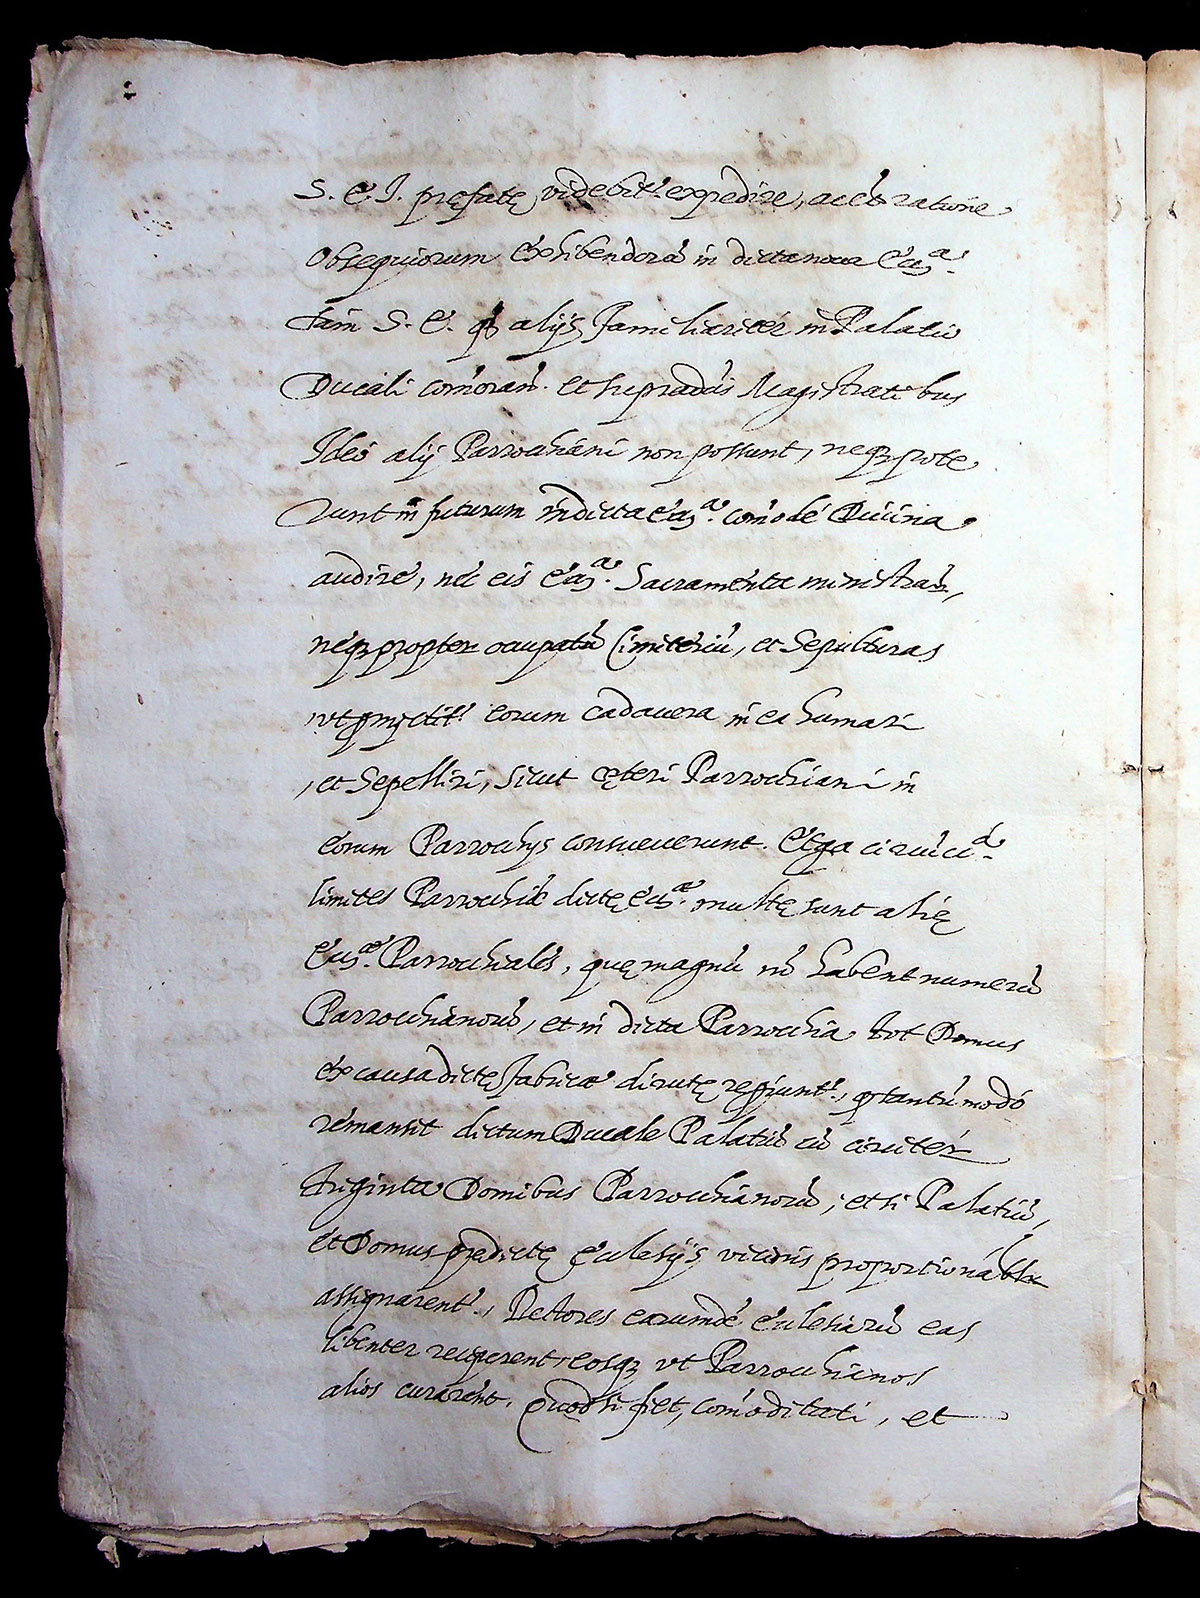 S. E. I. pręfatę videbit.r expedire, ac ẽt ratione
Obsequiorum Exhibendorũ in dicta noua Ecc.a
tam S. E. qͫ alijs Familiaritér in Palatio
Ducali com̃orañ. et supradcĩs Magistratibus
Ideò alij Parrochiani non possunt, neqꝫ pote
runt in futurum in dicta Ecc.a com̃odè Diuina
audire, nec eis Ecc.a Sacramenta ministrari,
neqꝫ propter occupatũ Cimiteriũ, et Sepulturas
, eorum cadauera in ea humari
, et Sepelliri, sicut cęteri Parrochiani in
eorum Parrochijs consueuerunt. Erga circũcirca
limites Parrochiæ dictę Ecc.æ multę sunt alię
Ecc.æ Parrochiales, quę magnũ nõ habent numerũ
Parrochianorũ, et in dicta Parrochia tot Domus
ex causa dictę fabricæ dirutę repiunt.r, qͫ tantũ modò
remansit dictum Ducale Palatiũ cũ circitér
triginta Domibus Parrochianorũ, et si Palatiũ,
et Domus prędictę Ecclesijs vicinis proportionabilr
assignarent.r, Rectores earumdẽ Ecclesiarũ eas
libenter reciperent, eosqꝫ vt Parrochianos
alios curarent. Quod si fiet, com̃oditati, et